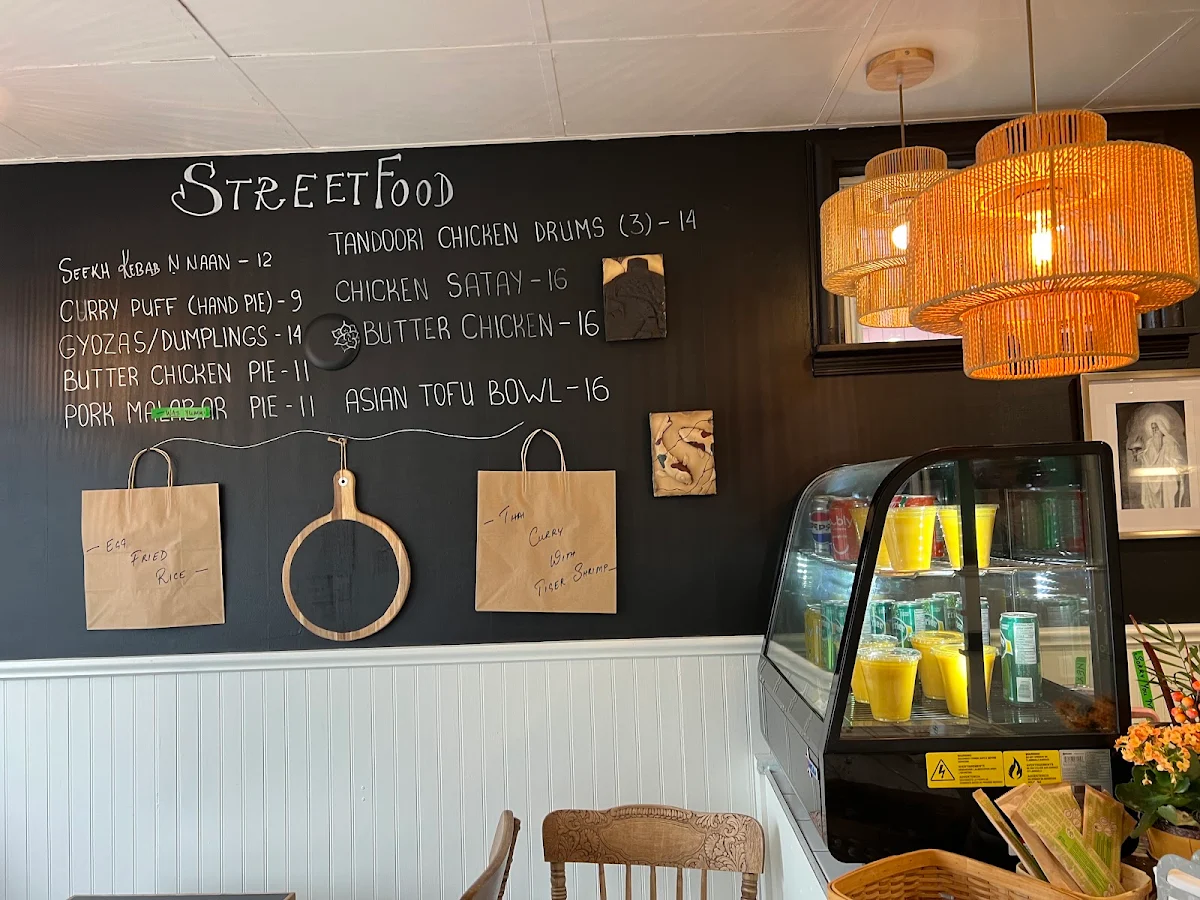 STREETFOOD
SEEKH KEBAB N NAAN - 12
CURRY PUFF (HAND PIE) - 9
GYOZAS/DUMPLINGS - 14
BUTTER CHICKEN PIE - 11
PORK MALABAR PIE - 11
TANDOORI CHICKEN DRUMS (3) - 14
CHICKEN SATAY - 16
BUTTER CHICKEN - 16
ASIAN TOFU BOWL - 16
- EGG
FRIED
RICE -
- THAI
CURRY
WITH
TIGER SHRIMP -
pepsi
bubly